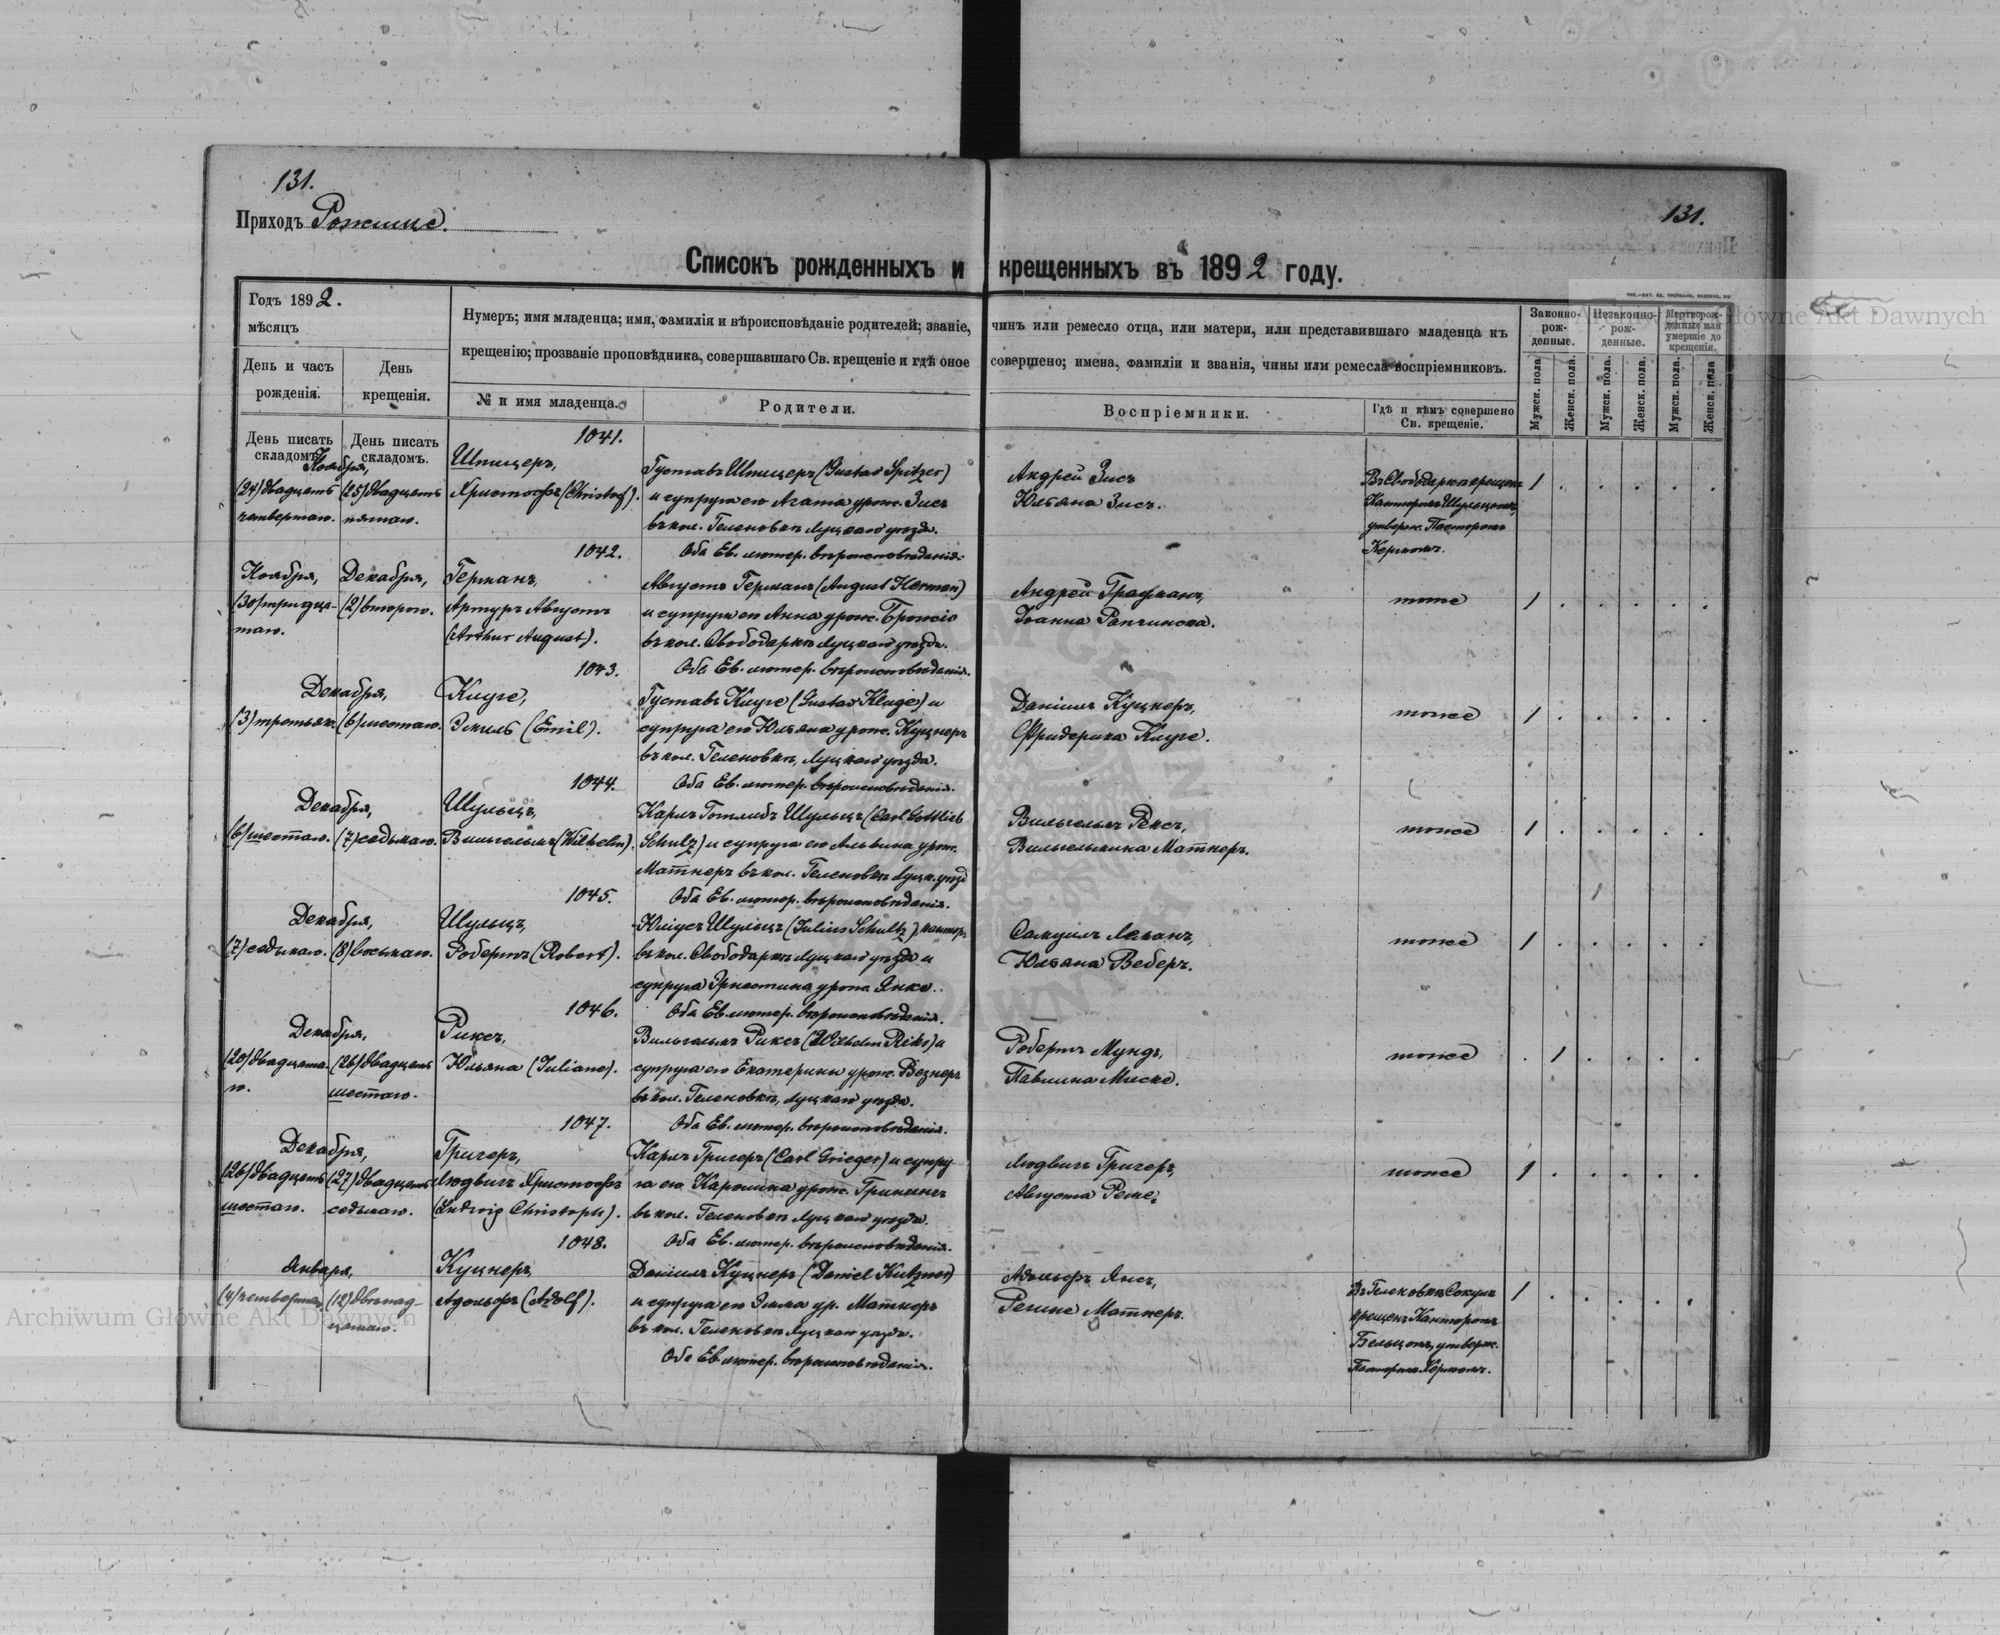 131.
Приходъ Рожище.
131.
Списокъ рожденныхъ и крещенныхъ въ 1892 году.
Годъ 1892.
мѣсяцъ
День и часъ рожденія.
День крещенія.
Нумеръ; имя младенца; имя, фамилія и вѣроисповѣданіе родителей; званіе, чинъ или ремесло отца, или матери, или представившаго младенца къ
крещенію; прозваніе проповѣдника, совершавшаго Св. крещеніе и гдѣ оное совершено; имена, фамиліи и званія, чины или ремесла воспріемниковъ.
№ и имя младенца.
Родители.
Воспріемники.
Гдѣ и кѣмъ совершено Св. крещеніе.
Законно-рож-денные.
Незаконно-рож-денные.
Мертворож-денные или умершіе до крещенія.
Мужск. пола
Женск. пола.
Мужск. пола.
Женск. пола.
Мужск. пола.
Женск. пола
День писать складомъ.
День писать складомъ.
1041.
Ноября,
(24) двадцать четвертаго.
(25) двадцать пятаго.
Шпицеръ,
Христофъ (Christof).
Густавъ Шпицеръ (Gustav Spitzer)
и супруга его Агата урож. Зисъ
въ кол. Геленовкѣ Луцкаго уѣзда.
Оба Ев. лютер. вѣроисповѣданія.
Андрей Зисъ
Юльяна Зисъ.
Въ Свободаркѣ крещенъ
Канторомъ Шульцомъ,
утвержд. Пасторомъ
Кермомъ.
1
1042.
Ноября,
(30) тридца-
таго.
Декабря,
(2) второго.
Германъ,
Артуръ Августъ
(Arthur August).
Августъ Германъ (August Herman)
и супруга его Анна урож.
въ кол. Свободаркѣ Луцкаго уѣзда.
Оба Ев. лютер. вѣроисповѣданія.
Андрей Графманъ,
Іоанна
тоже
1
1043.
Декабря,
(3) третьяго.
(6) шестаго.
Клуге,
Эмиль (Emil).
Густавъ Клуге (Gustav Kluge) и
супруга его Юльяна урож. Куцнеръ
въ кол. Геленовкѣ, Луцкаго уѣзда.
Оба Ев. лютер. вѣроисповѣданія.
Даніилъ Куцнеръ,
Фридерика Клуге.
тоже
1
1044.
Декабря,
(6) шестаго.
(7) седьмаго.
Шульцъ,
Вильгельмъ (Wilhelm).
Карлъ Готлибъ Шульцъ (Carl Gottlieb
Schulz) и супруга его Альвина урож.
Матнеръ въ кол. Геленовкѣ Луцк. уѣзд
Оба Ев. лютер. вѣроисповѣданія.
Вильгельмъ Рексъ,
Вильгельмина Матнеръ.
тоже
1
1045.
Декабря,
(7) седьмаго.
(8) восьмаго.
Шульцъ,
Робертъ (Robert).
Юліусъ Шульцъ (Julius Schultz), канторъ
въ кол. Свободаркѣ Луцкаго уѣзда и
супруга Эрнестина урож. Янке.
Оба Ев. лютер. вѣроисповѣданія.
Самуилъ Леманъ,
Юльяна Веберъ.
тоже
1
1046.
Декабря,
(20) двадцата-
го.
(26) двадцать
шестаго.
Риксъ,
Юльяна (Juliane).
Вильгельмъ Риксъ (Wilhelm Riks) и
супруга его Екатерины урож. Везнеръ
въ кол. Геленовкѣ, Луцкаго уѣзда.
Оба Ев. лютер. вѣроисповѣданія.
Робертъ Мундъ,
Павлина Миске.
тоже
1
1047.
Декабря,
(26) двадцать
шестаго.
(27) двадцать
седьмаго.
Григеръ,
Людвигъ Христофъ
(Ludwig Christoph).
Карлъ Григеръ (Carl Grieger) и супру-
га его Каролина урож.
въ кол. Геленовкѣ Луцкаго уѣзда.
Оба Ев. лютер. вѣроисповѣданія.
Людвигъ Григеръ,
Августа
тоже
1
1048.
Января,
(4) четвертаго
(12) двѣнад-
цатаго.
Куцнеръ,
Адольфъ (Adolf).
Даніилъ Куцнеръ (Daniel Kutzner)
и супруга его Эмма ур. Матнеръ
въ кол. Геленовкѣ Луцкаго уѣзда.
Оба Ев. лютер. вѣроисповѣданія.
Адольфъ Янсъ,
Регине Матнеръ.
Въ Геленовкѣ
крещенъ Канторомъ
утвержд.
Пасторомъ Кермомъ.
1
Archiwum Główne Akt Dawnych
Archiwum Główne Akt Dawnych